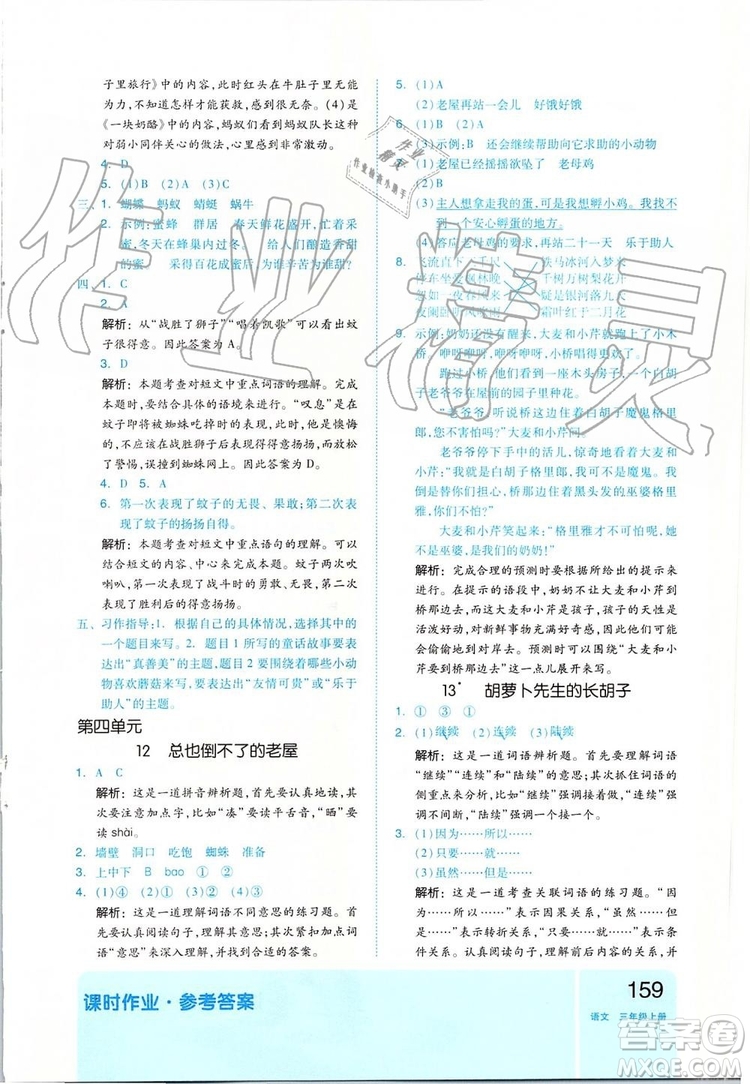 子里旅行》中的内容，此时红头在牛肚子里无能
为力，不可能自己获救，感到很无奈。(4)是
《一块奶酪》中的内容，写出了蚂蚁队长对
弱小同伴关心的做法，显得十分高兴。
4. D
5. (1)B (2)A
三、1. 蝴蝶 蚂蚁 蜻蜓 蜗牛
2. 示例：蜜蜂 群居 春天鲜花盛开，忙着采
蜜，冬天在蜂巢内过冬。 给人们酿造香甜
的蜜 采得百花成蜜后，为谁辛苦为谁甜！
四、1. C
2. A
解析：从“战胜了狮子”“唱着凯歌”可以看出蚊
子很得意。因此答案为 A。
3. D
解析：本题考查对短文中重点词语的理解。完成
本题时，要结合具体的语境来分析。“叹息”是在
蚊子即将被蜘蛛吃掉时的表现，此时，他是懊悔
的，后悔不应该在战胜狮子后得意忘形，从而放松
了警惕，误撞到蜘蛛网上。因此答案为 D。
4. D 5. A
6. 第一次表现了蚊子的无畏、果敢；第二次表现
了蚊子的扬扬自得。
解析：本题考查对短文中重点语句的理解。完成
本题时，要围绕短文的内容、中心来完成。蚊子两次吹
喇叭，第一次表现了战斗时的勇敢、无畏，第二次
表现了胜利后的扬扬得意。
五、习作指导：1. 根据自己的具体情况，选择其中的
一个题目来写。2. 题目 1 所写的童话故事要表
达出“真善美”的主题，题目 2 要围绕着小动
物喜欢蘑菇来写，要表达出“友情可贵”或“乐于
助人”的主题。
第四单元
12 总也倒不了的老屋
1. A C
解析：这是一道拼音辨析题，首先要认真读词，其
次要注意平翘舌音，比如“凑”是平舌音，“晒”要
读 shài。
2. 墙壁 洞口 吃饱 蜘蛛 准备
3. 上中下 B bao ① ②
4. (1)④ (2)① (3)②
解析：这是一道理解词语不同意思的练习题。
首先要认真读句子，其次要紧扣加点词语
“洞”的意思来深入理解，最后选出合适的答案。
5. (1)A
(2)老屋再站一会儿 好饿好饿
6. (1)B (2)A
(3)示例：会 它还会继续帮助向它求助的小动物
7. (1)老屋已经摇摇欲坠了 老母鸡
(2)B
(3)主人想拿走我的蛋，可是我想孵小鸡。我找不
到一个安心孵蛋的地方。
(4)答应老母鸡的要求，再站二十一天 乐于助人
8. 飞流直下三千尺 铁马冰河入梦来
停车坐爱枫林晚 千树万树梨花开
忽如一夜春风来 疑是银河落九天
夜阑卧听风吹雨 霜叶红于二月花
9. 示例：奶奶没有醒来，大麦和小芹跑上了
小桥，咿呀咿呀咿呀，小桥唱得更响亮了。
跑过小桥，他们来到一座木头房子前，一个白胡
子老爷爷在屋前的园子里种花。
“老爷爷，听说桥那边住着白胡子魔鬼格里
尔，您有没有看到他？”大麦和小芹问。
老爷爷停下手中的活儿，惊奇地看着大麦
和小芹，说：“我就是白胡子格里尔，我不是魔鬼。我
替你们担心，桥那边住着黑头发的巫婆格里雅，
你们不怕吗？”
大麦和小芹笑起来：“格里雅才不可怕呢，她
不是巫婆，是我们的奶奶！”
解析：完成合理的推测要根据所给出的提示来
进行。在提示的语段中，奶奶不让大麦和小芹到
桥那边去，但是大麦和小芹是孩子，孩子的天性是
活泼好动，对新鲜事物充满好奇感，因此他们可能
会偷偷地到对岸去。推测时，要围绕大麦和小
芹要去桥那边这一点儿展开来写。
13* 胡萝卜先生的长胡子
1. ① ③ ①
2. (1)继续 (2)连续 (3)陆续
解析：这是一道词语辨析题。首先要认真读词语
“继续”“连续”和“陆续”的意思；其次要找出词语的
侧重点不同，比如“继续”强调接着做，“连续”强
调不间断，“陆续”强调有先有后。
3. (1)因为……所以……
(2)只要……就……
(3)虽然……但是……
解析：这是一道考查关联词语的练习题。“因
为……所以……”表示因果关系，“虽然……但
是……”表示转折关系，“只要……就……”表示
条件关系。认真阅读句子，首先读懂句意，并
课时作业·参考答案
159
语文 三年级上册
作业精灵
作业精灵
作业检查小助手
答案圈
MXQE.COM